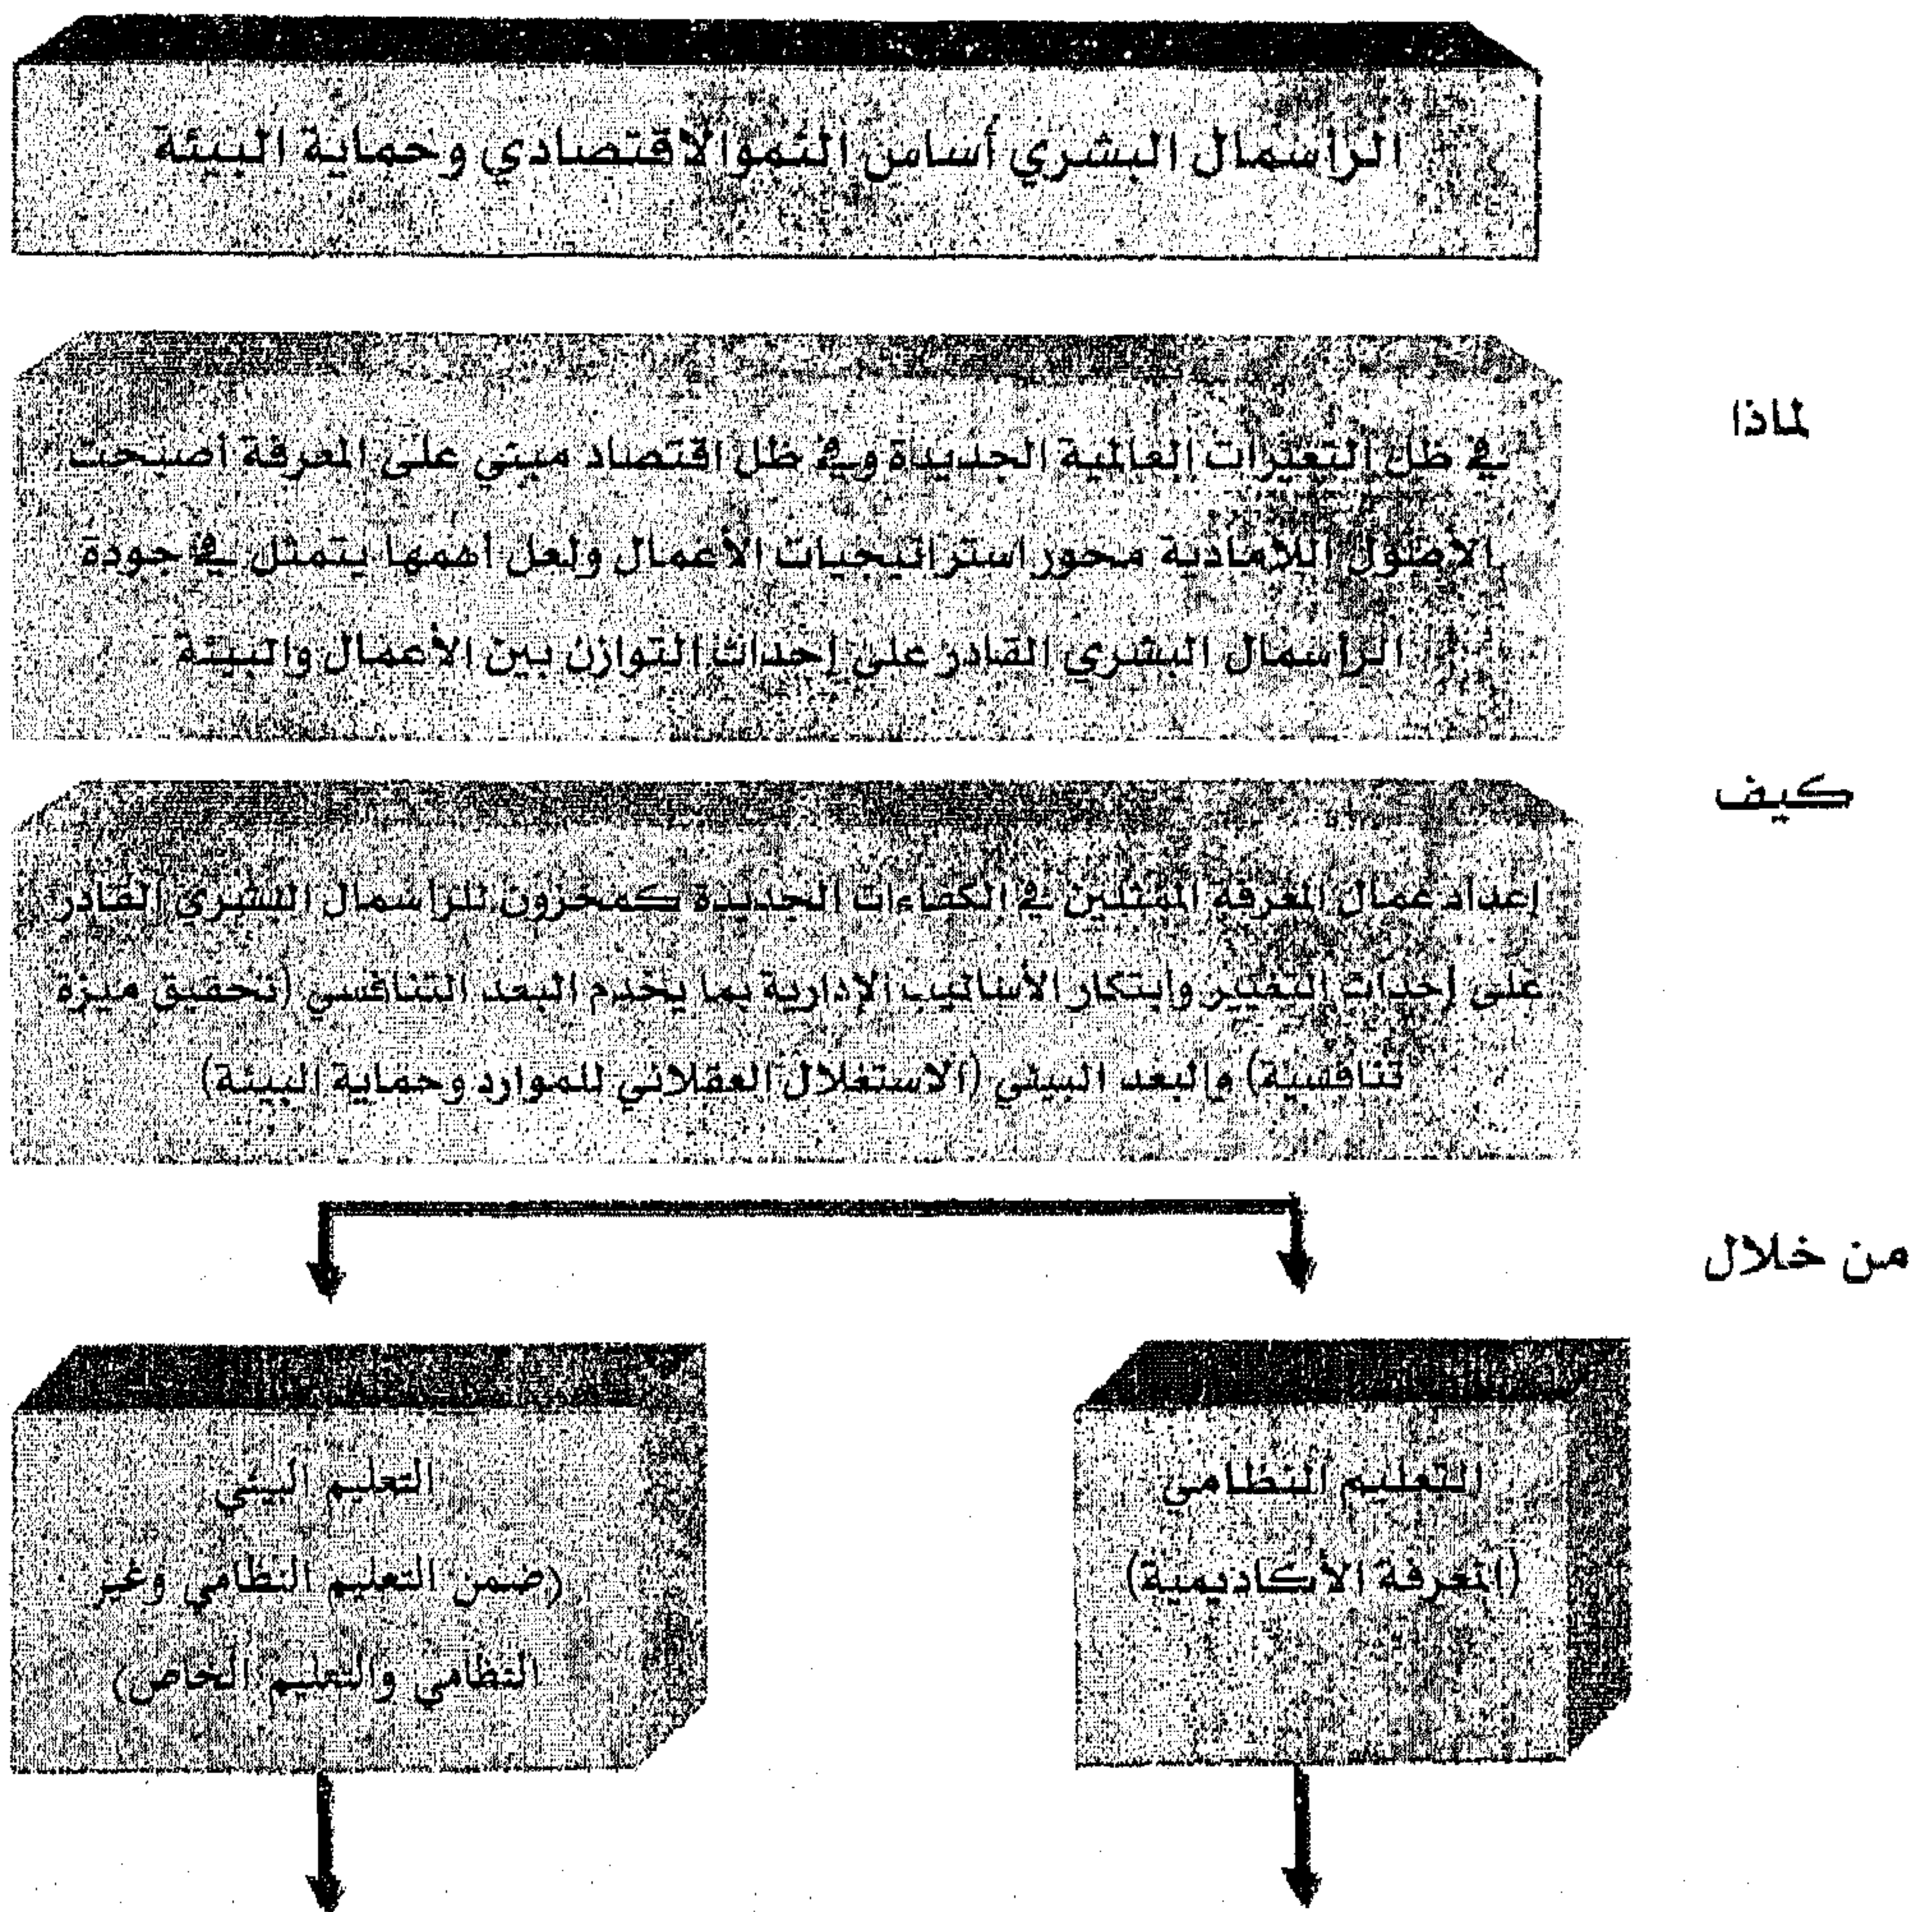 الرأسمال البشري أساس النمو الاقتصادي وحماية البيئة
لماذا
في ظل التغيرات العالمية الجديدة وفي ظل اقتصاد مبني على المعرفة أصبحت
الأصول اللامادية محور استراتيجيات الأعمال ولعل أهمها يتمثل في جودة
الرأسمال البشري القادر على إحداث التوازن بين الأعمال والبيئة
كيف
إعداد عمال المعرفة الممثلين في الكفاءات الجديدة كمخزون للرأسمال البشري القادر
على إحداث التغيير وابتكار الأساليب الإدارية بما يخدم البعد التنافسي (تحقيق ميزة
تنافسية) والبعد البيئي (الاستغلال العقلاني للموارد وحماية البيئة)
من خلال
التعليم النظامي
(المعرفة الأكاديمية)
التعليم البيئي
(ضمن التعليم النظامي وغير
النظامي والتعليم الخاص)